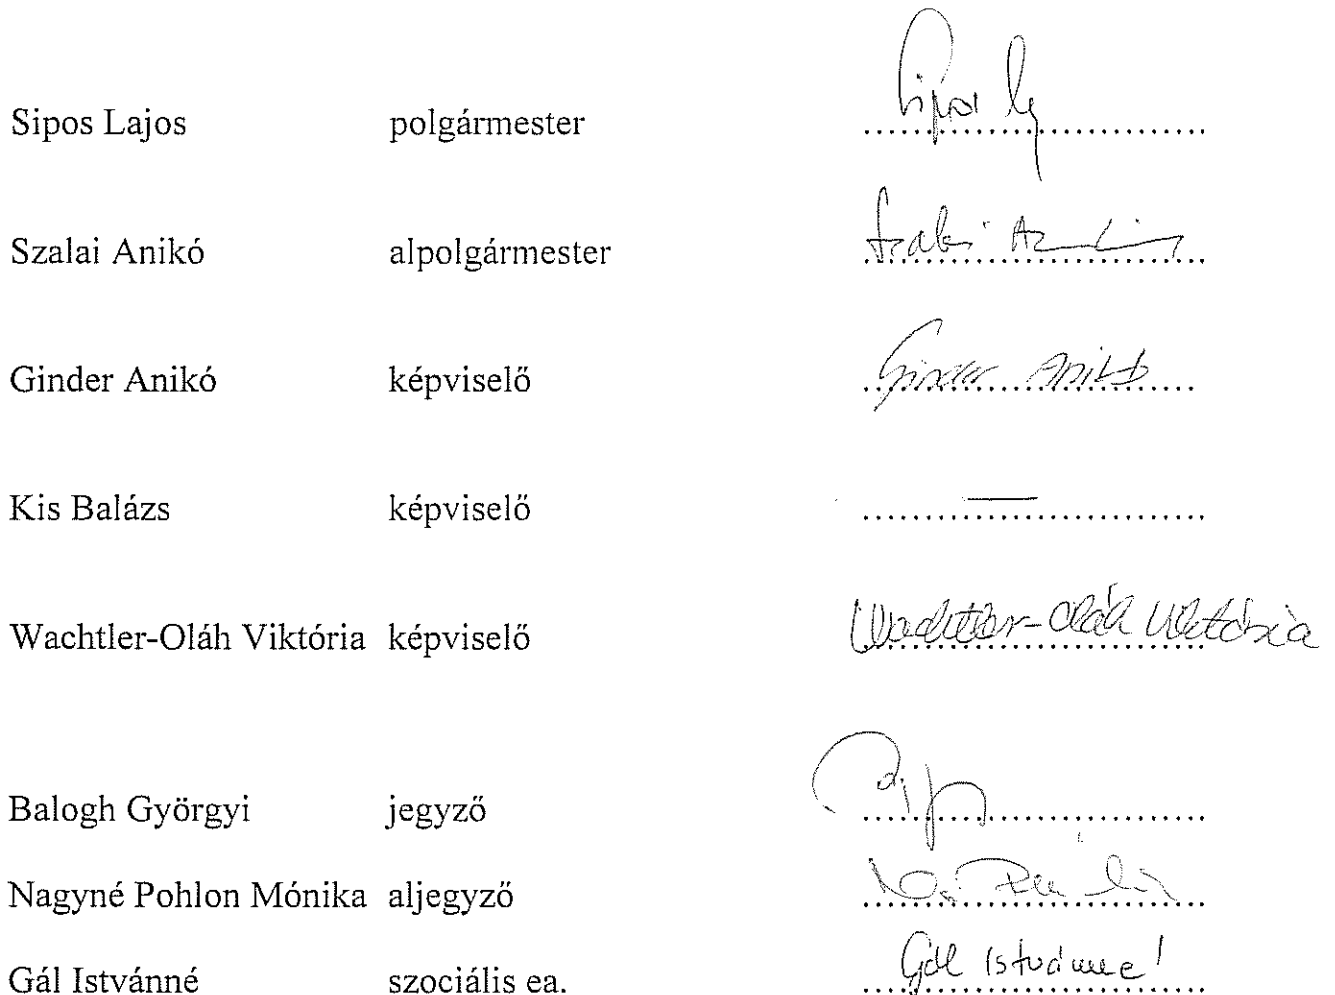 Sipos Lajos polgármester ........................... Sipos L
Szalai Anikó alpolgármester ........................... Szalai
Ginder Anikó képviselő ........................... Ginder Anikó
Kis Balázs képviselő ........................... —
Wachtler-Oláh Viktória képviselő ........................... Wachtler-Oláh Viktória
Balogh Györgyi jegyző ...........................
Nagyné Pohlon Mónika aljegyző ...........................
Gál Istvánné szociális ea. ........................... Gál Istvánné